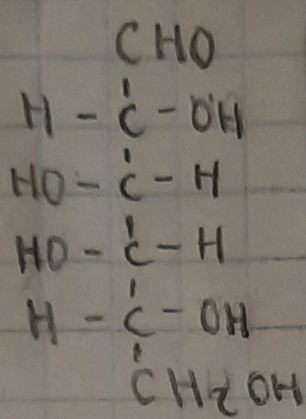 CHO
H - C - OH
HO - C - H
HO - C - H
H - C - OH
CH2OH